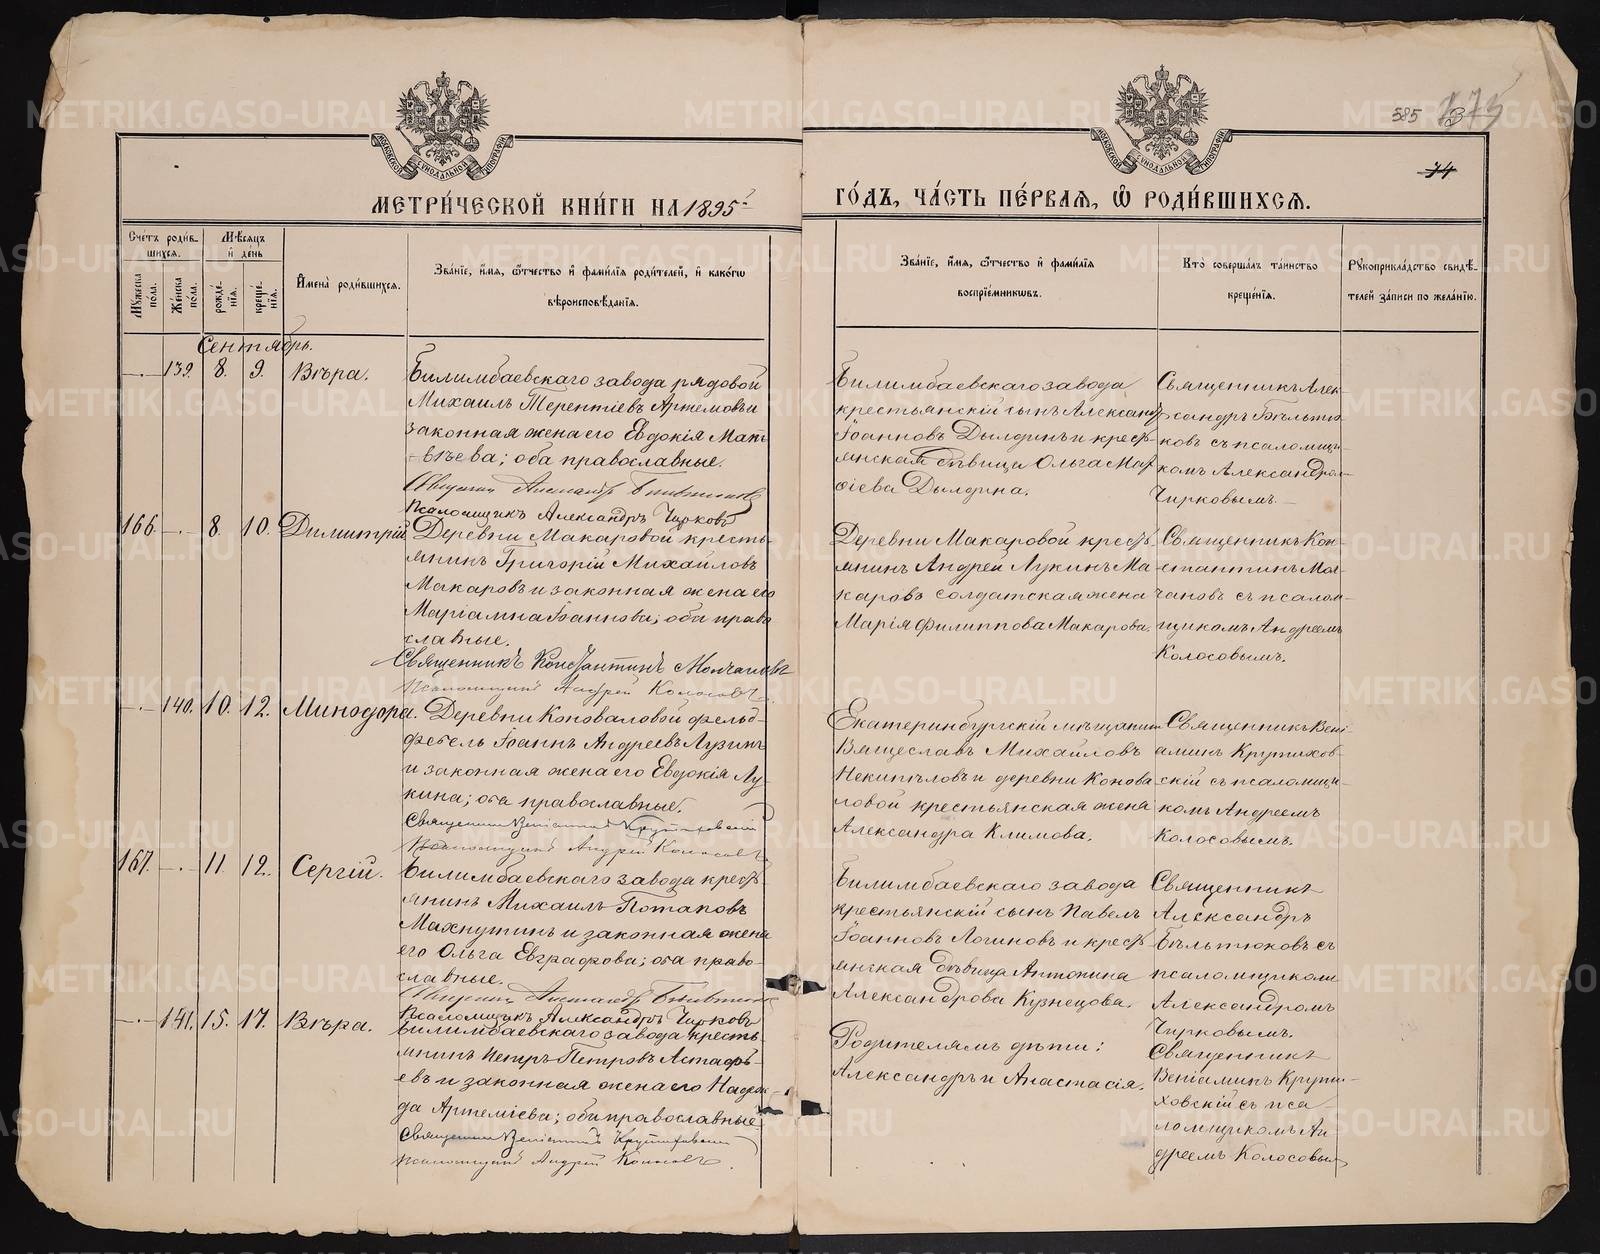 585
74
МОСКОВСКОЙ СУНОДАЛЬНОЙ ТИПОГРАФІИ
МОСКОВСКОЙ СУНОДАЛЬНОЙ ТИПОГРАФІИ
МЕТРИ́ЧЕСКОЙ КНИ́ГИ НА 1895й
ГО́ДЪ, ЧА́СТЬ ПЕ́РВАЯ, Ѡ҆ РОДИ́ВШИХСЯ.
Сче́тъ роди́в-
шихся.
Мѣ́сяцъ
и҆ де́нь
Му́жеска
по́ла.
Же́нска
по́ла.
рожде́-
нїя.
креще́-
нїя.
И҆мена̀ роди́вшихся.
Зва́нїе, и҆́мя, ѻ҆́тчество и҆ фами́лїя роди́телей, и҆ како́гѡ
вѣроисповѣ́данїя.
Зва́нїе, и҆́мя, ѻ҆́тчество и҆ фами́лїя
воспрїе́мникѡвъ.
Кто̀ соверша́лъ та́инство
креще́нїя.
Рꙋкоприкла́дство свидѣ́-
телей за́писи по жела́нїю.
Сентябрь.
139. 8. 9. Вѣра.
Билимбаевскаго завода рядовой
Михаилъ Терентіевъ Артемовъ и
законная жена его Евдокія Мат-
вѣева; оба православные.
Псаломщикъ Александръ Чирковъ
Билимбаевскаго завода
крестьянскій сынъ Александръ
Іоанновъ Дылдинъ и кресть-
янская дѣвица Ольга Мар
ѳіева Дылдина.
Священникъ Алек-
сандръ Бѣльтю-
ковъ съ псаломщи-
комъ Александром-
Чирковымъ.
166. 8. 10. Димитрій
Деревни Макаровой кресть-
янинъ Григорій Михайловъ
Макаровъ и законная жена его
Маріамна Іоаннова; оба право
славные.
Священникъ Константинъ Молчановъ
Псаломщикъ Андрей Колосовъ
Деревни Макаровой кресть-
янинъ Андрей Лукинъ Ма-
каровъ солдатская жена
Марія Филиппова Макарова.
Священникъ Кон-
стантинъ Мол-
чановъ съ псалом-
щикомъ Андреемъ
Колосовымъ.
140. 10. 12. Минодора.
Деревни Коноваловой фельд-
фебель Іоаннъ Андреевъ Лузинъ
и законная жена его Евдокія Лу-
кина; оба православные.
Священникъ Веніаминъ Крутиховскій
Псаломщикъ Андрей Колосовъ
Екатеринбургскій мѣщанин
Вячеславъ Михайловъ
Некипѣловъ и деревни Конова-
ловой крестьянская жена
Александра Климова.
Священникъ Вені-
аминъ Крутихов-
скій съ псаломщи-
комъ Андреемъ
Колосовымъ.
167. 11. 12. Сергій.
Билимбаевскаго завода кресть-
янинъ Михаилъ Потаповъ
Махнутинъ и законная жена
его Ольга Евграфова; оба право-
славные.
Псаломщикъ Александръ Чирковъ
Билимбаевскаго завода
крестьянскій сынъ Павелъ
Іоанновъ Логиновъ и кресть-
янская дѣвица Антонина
Александрова Кузнецова.
Священникъ
Александръ
Бѣльтюковъ съ
псаломщикомъ
Александромъ
Чирковымъ.
141. 15. 17. Вѣра.
Билимбаевскаго завода кресть-
янинъ Петръ Петровъ Астафь-
евъ и законная жена его Надеж-
да Артеміева; оба православные
Священникъ Веніаминъ Крутиховскій
Псаломщикъ Андрей Колосовъ.
Родителямъ дѣти:
Александръ и Анастасія.
Священникъ
Веніаминъ Крути-
ховскій съ пса
ломщикомъ Ан
дреемъ Колосовым
METRIKI.GASO-URAL.RU